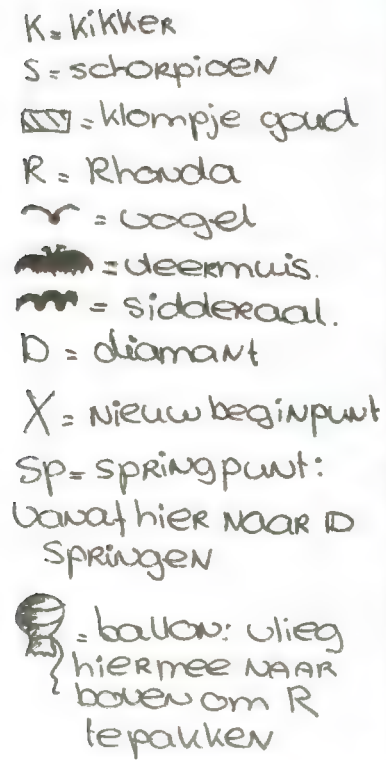 K = kikker
S = schorpioen
= klompje goud
R = Rhonda
= vogel
= vleermuis.
= sidderaal.
D = diamant
X = nieuw beginpunt
SP = springpunt:
vanaf hier naar D
springen
= ballon: vlieg
hiermee naar
boven om R
te pakken